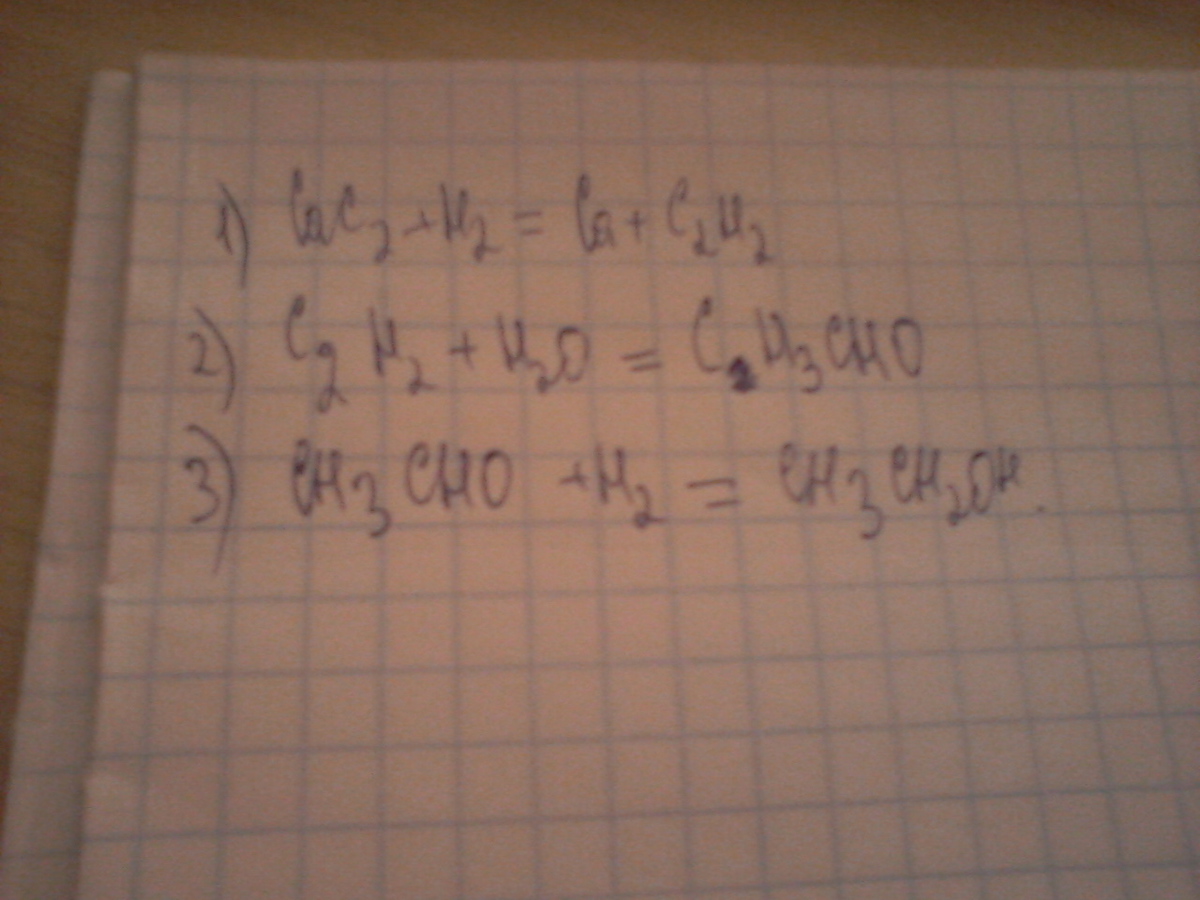 1) CaC2 + H2 = Ca + C2H2
2) C2H2 + H2O = C2H3CHO
3) CH3CHO + H2 = CH3CH2OH.